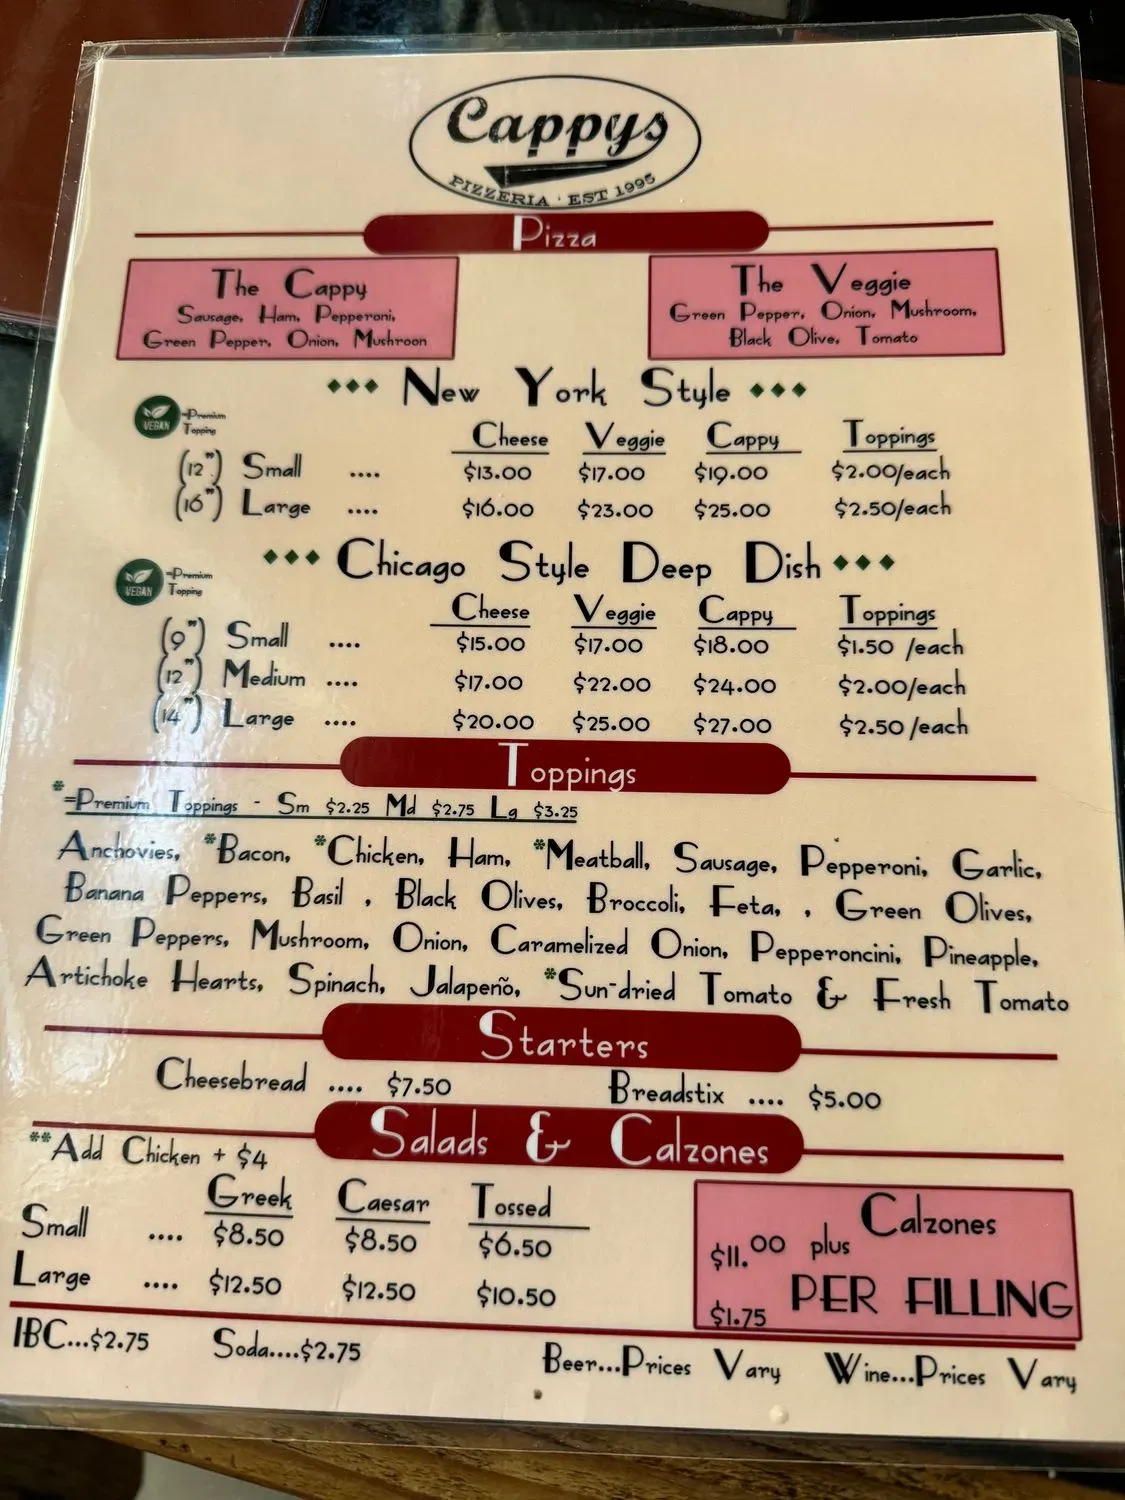 Cappys
PIZZERIA · EST 1995
Pizza
The Cappy
Sausage, Ham, Pepperoni,
Green Pepper, Onion, Mushroon
The Veggie
Green Pepper, Onion, Mushroom,
Black Olive, Tomato
New York Style
VEGAN =Premium Topping
Cheese Veggie Cappy Toppings
(12") Small .... $13.00 $17.00 $19.00 $2.00/each
(16") Large .... $16.00 $23.00 $25.00 $2.50/each
Chicago Style Deep Dish
VEGAN =Premium Topping
Cheese Veggie Cappy Toppings
(9") Small .... $15.00 $17.00 $18.00 $1.50 /each
(12") Medium .... $17.00 $22.00 $24.00 $2.00/each
(14") Large .... $20.00 $25.00 $27.00 $2.50 /each
Toppings
*=Premium Toppings - Sm $2.25 Md $2.75 Lg $3.25
Anchovies, *Bacon, *Chicken, Ham, *Meatball, Sausage, Pepperoni, Garlic,
Banana Peppers, Basil , Black Olives, Broccoli, Feta, , Green Olives,
Green Peppers, Mushroom, Onion, Caramelized Onion, Pepperoncini, Pineapple,
Artichoke Hearts, Spinach, Jalapeño, *Sun-dried Tomato & Fresh Tomato
Starters
Cheesebread .... $7.50 Breadstix .... $5.00
Salads & Calzones
**Add Chicken + $4
Greek Caesar Tossed
Small .... $8.50 $8.50 $6.50
Large .... $12.50 $12.50 $10.50
Calzones
$11.00 plus
$1.75 PER FILLING
IBC...$2.75 Soda....$2.75 Beer...Prices Vary Wine...Prices Vary